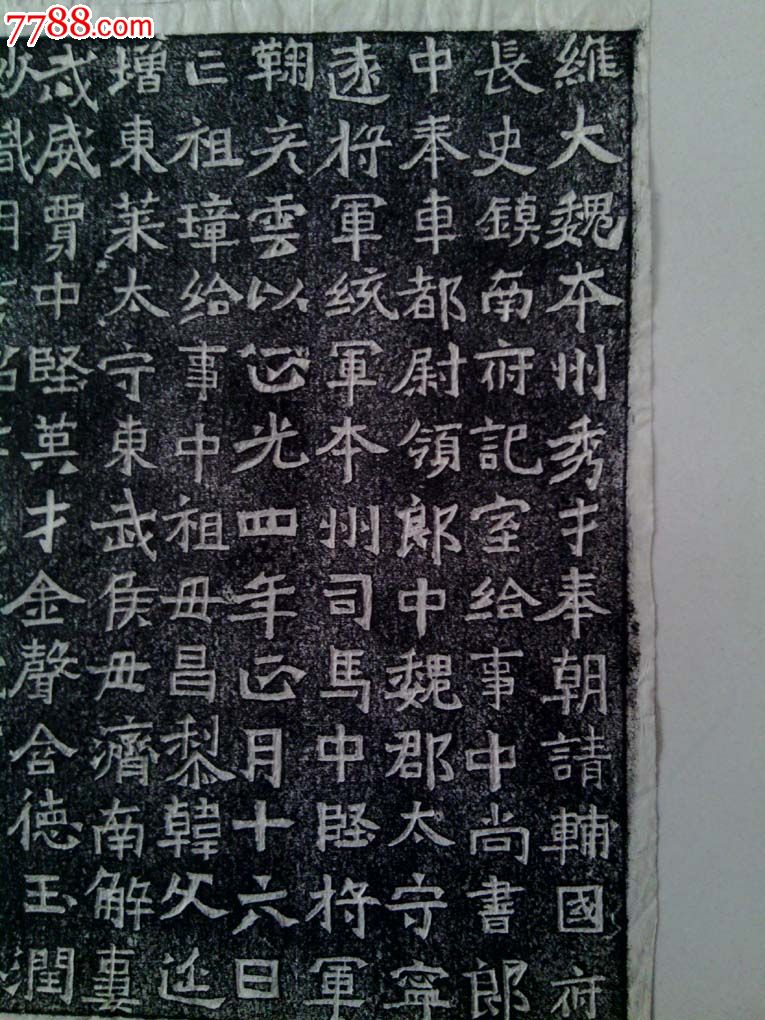 7788.com
維大魏本州秀才奉朝請輔國府
長史鎮南府記室給事中尚書郎
中奉車都尉領郎中魏郡太守寧
遠將軍統軍本州司馬中堅將軍
鞠彥雲以正光四年正月十六日
亡祖璋給事中祖母昌黎韓父延
增東萊太守東武侯母濟南解妻
武威賈中堅英才金聲含德玉潤